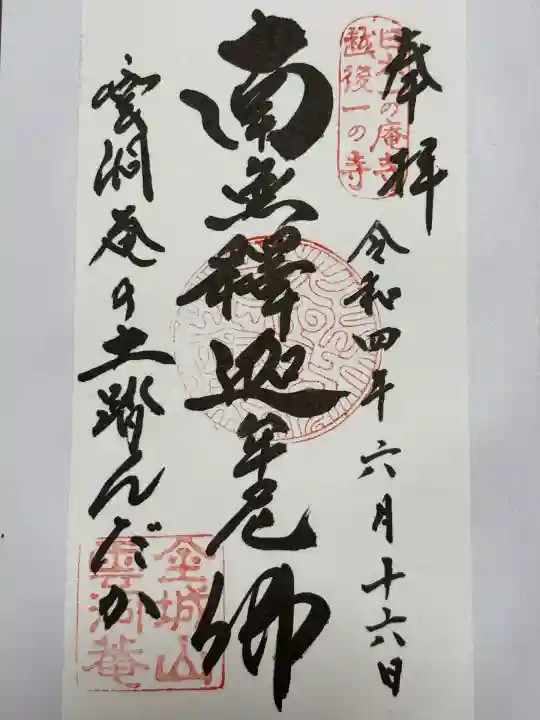 奉拝
日本一の庵寺
越後一の寺
令和四年六月十六日
南無釋迦牟尼佛
雲洞菴の土踏んだか
金城山
雲洞菴